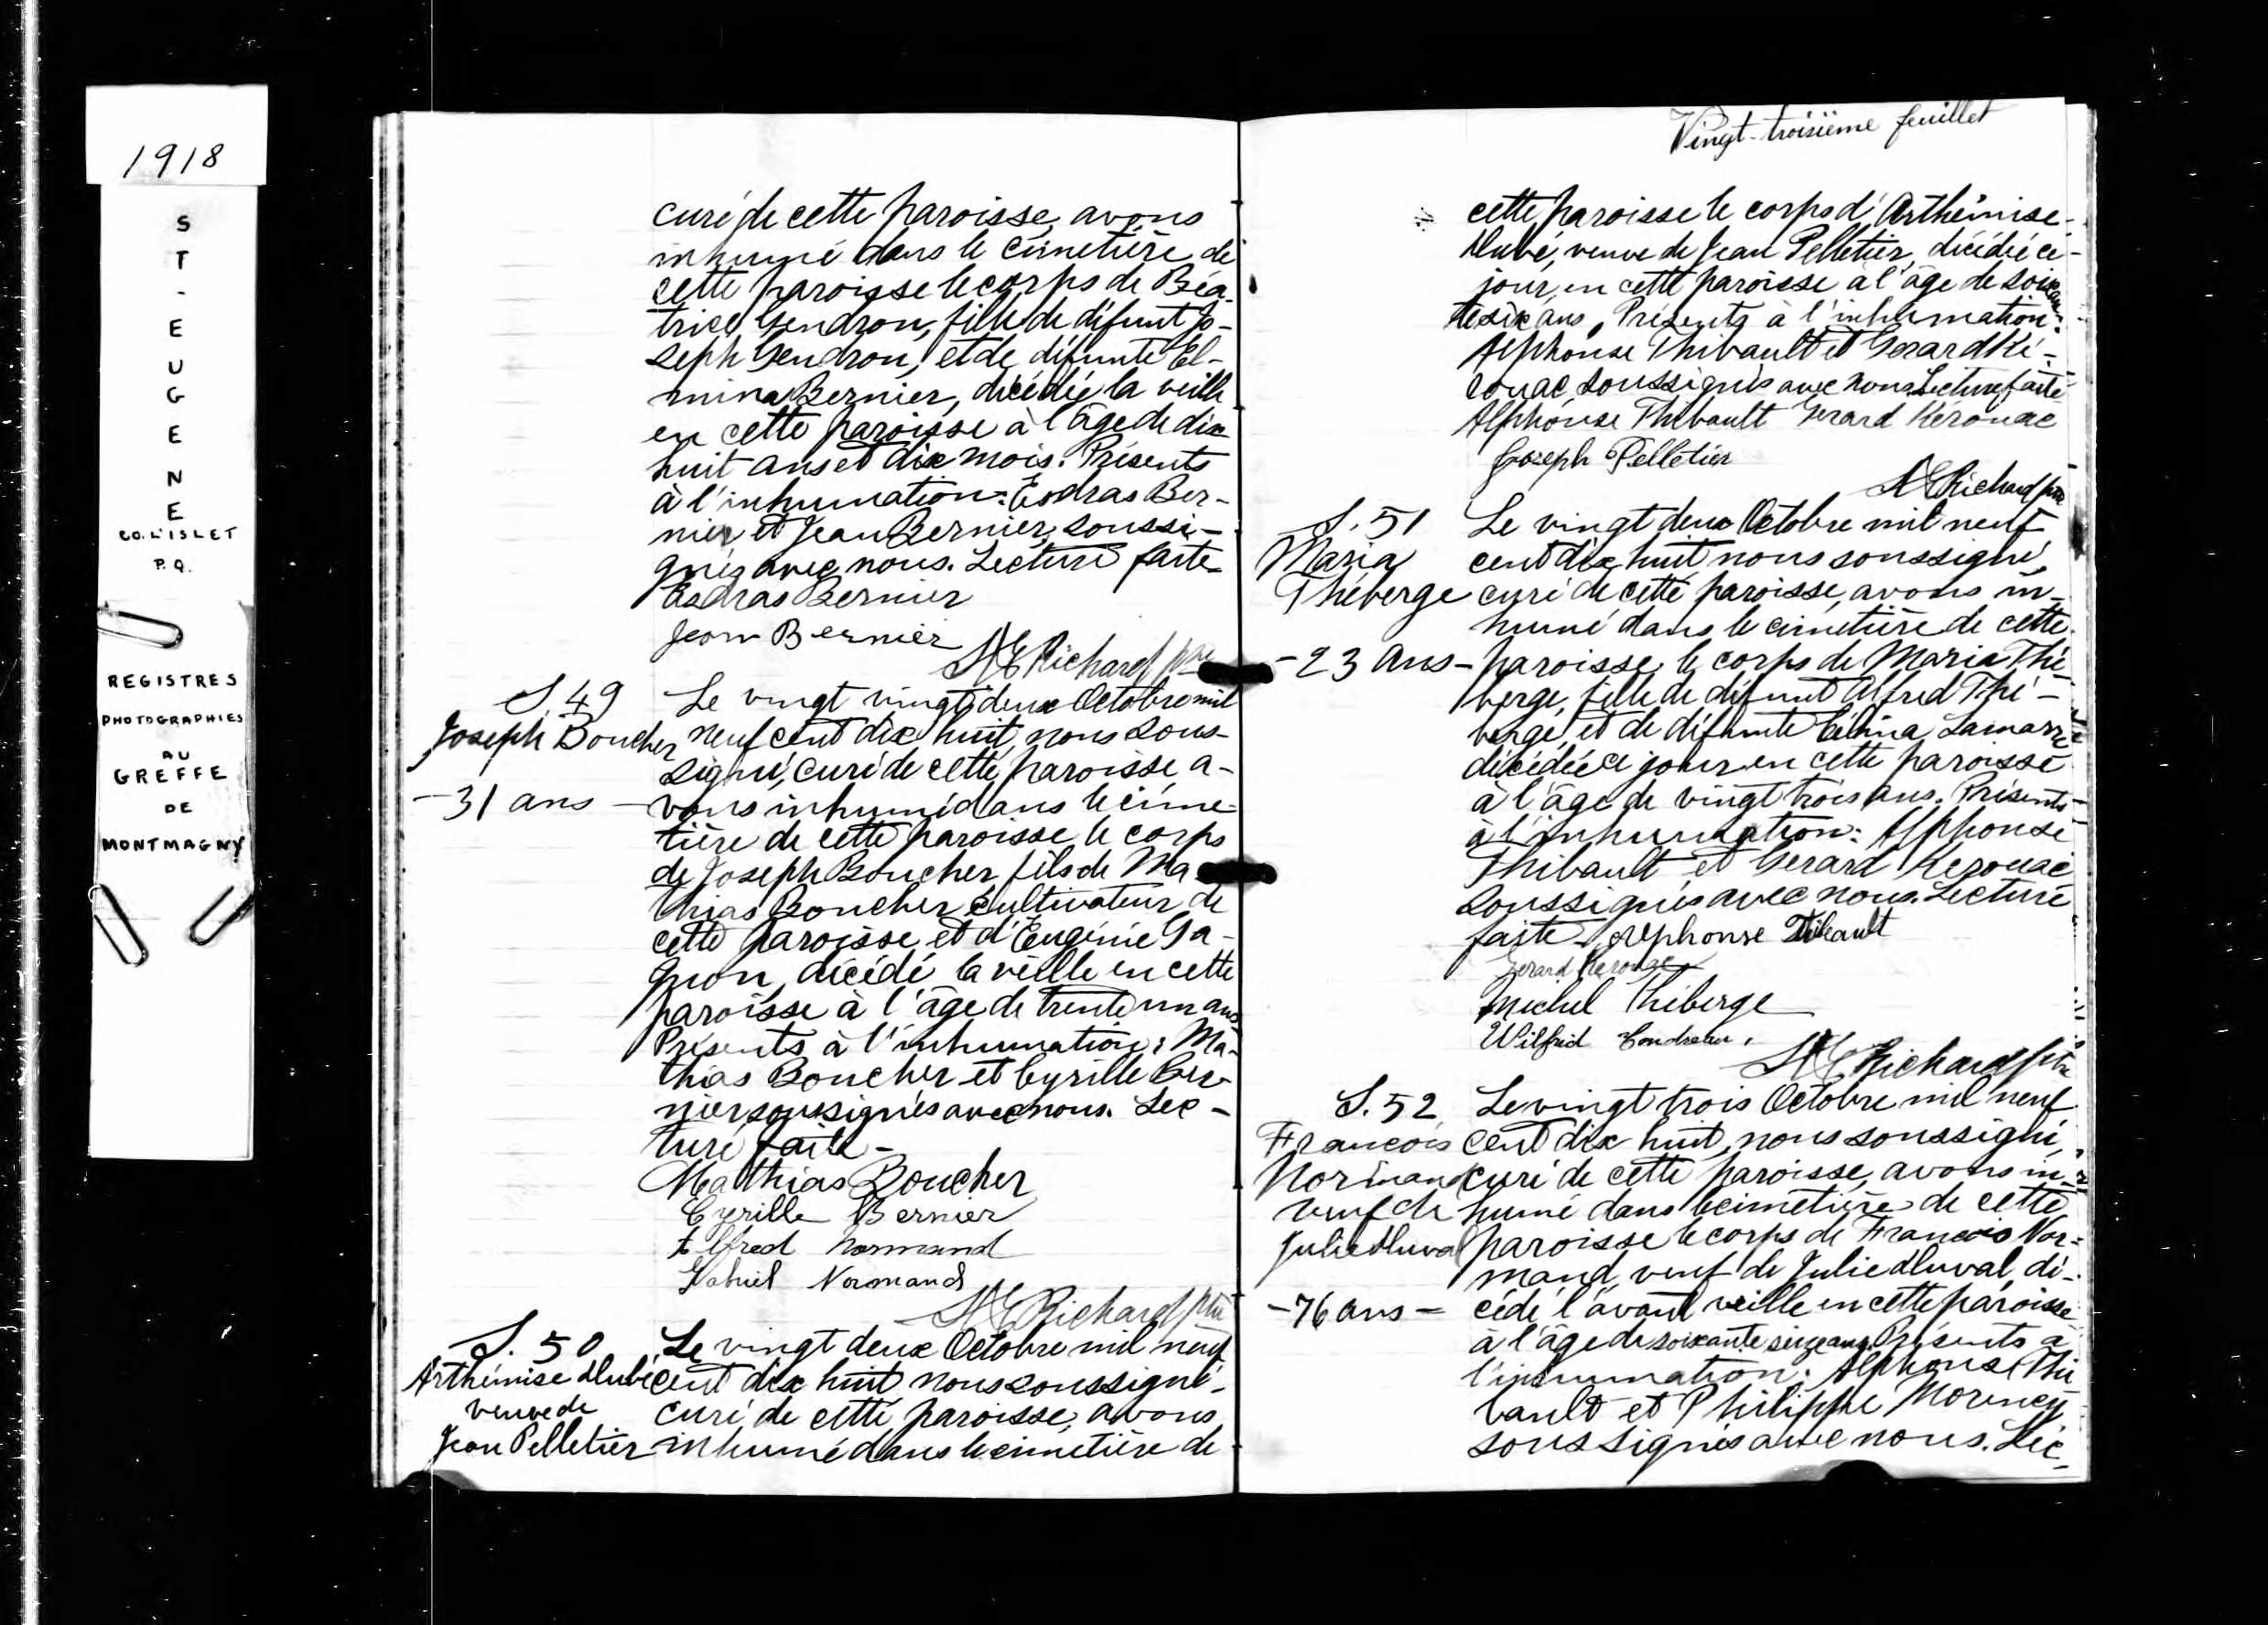 1918
ST-EUGENE
CO. L'ISLET
P.Q.
REGISTRES
PHOTOGRAPHIES
AU
GREFFE
DE
MONTMAGNY
curé de cette paroisse, avons
inhumé dans le cimetière de
cette paroisse le corps de Béa-
trice Gendron, fille de défunt Jo-
seph Gendron, et de défunte El-
mina Bernier, décédée la veille
en cette paroisse à l'âge de dix
huit ans et dix mois. Présents
à l'inhumation: Esdras Ber-
nier et Jean Bernier, soussi-
gnés avec nous. Lecture faite
Esdras Bernier
Jean Bernier
Richard ptre
S. 49
Joseph Boucher
-31 ans-
Le vingt vingt deux Octobre mil
neuf cent dix huit, nous sous-
signé, curé de cette paroisse a-
vons inhumé dans le cime-
tière de cette paroisse le corps
de Joseph Boucher, fils de Ma-
thias Boucher, cultivateur de
cette paroisse, et d'Eugénie Ga-
gnon, décédé la veille en cette
paroisse à l'âge de trente un ans
Présents à l'inhumation: Ma-
thias Boucher et Cyrille Ber-
nier soussignés avec nous. Lec-
ture faite-
Matthias Boucher
Cyrille Bernier
Alfred Normand
Gabriel Normand
Richard ptre
S. 50
Arthémise Dubé
veuve de
Jean Pelletier
Le vingt deux Octobre mil neuf
cent dix huit nous soussigné-
curé de cette paroisse, avons
inhumé dans le cimetière de
Vingt-troisième feuillet
cette paroisse le corps d'Arthémise
Dubé, veuve de Jean Pelletier, décédée ce-
jour, en cette paroisse à l'âge de soixan
te six ans, Présents à l'inhumation:
Alphonse Thibault et Gerard Ké-
rouac, soussignés avec nous. Lecture faite
Alphonse Thibault Gerard Kérouac
Joseph Pelletier
Richard ptre
S. 51
Maria
Théberge
-23 ans-
Le vingt deux Octobre mil neuf
cent dix huit nous soussigné,
curé de cette paroisse, avons in-
humé dans le cimetière de cette
paroisse, le corps de Maria Thé-
berge, fille de défunt Alfred Thé-
berge, et de défunte Célina Lamarre
décédée ce jour en cette paroisse
à l'âge de vingt trois ans. Présents
à l'inhumation: Alphonse
Thibault et Gerard Kerouac
soussignés avec nous. Lecture
faite- Alphonse Thibault
Gerard Kerouac
Michel Théberge
Wilfrid
Richard ptre
S. 52
Francois
Normand
veuf de
Julie Duval
-76 ans-
Le vingt trois Octobre mil neuf
cent dix huit, nous soussigné,
curé de cette paroisse, avons in-
humé dans le cimetière de cette
paroisse le corps de Francois Nor-
mand, veuf de Julie Duval, dé-
cédé l'avant veille en cette paroisse
à l'âge de soixante seize ans. Présents à
l'inhumation: Alphonse Thi
bault et Philippe Morency
soussignés avec nous. Lec-